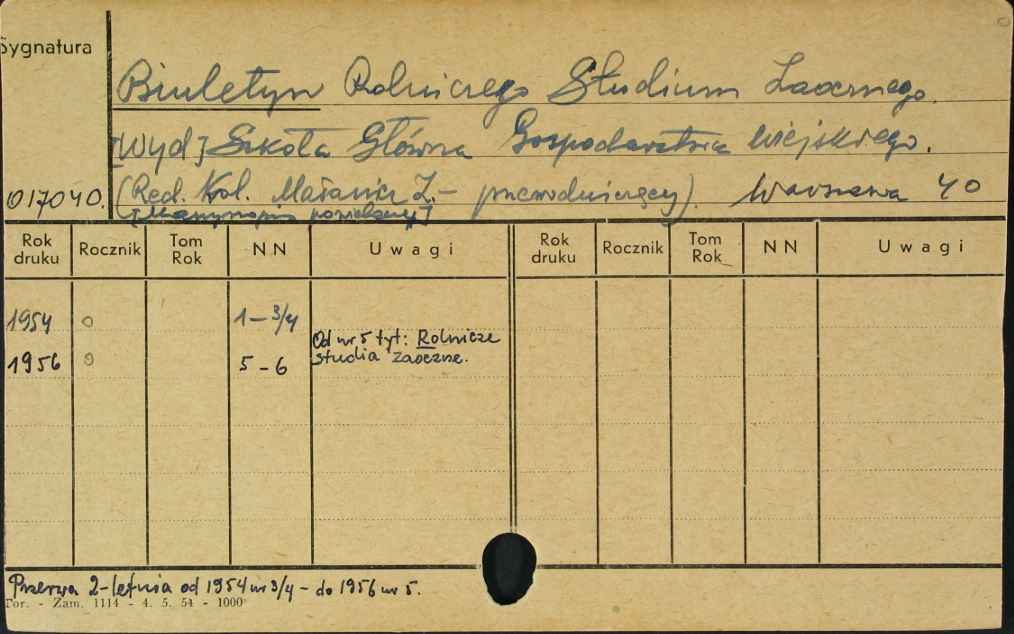 Sygnatura
Biuletyn Rolniczego Studium Zaocznego.
[Wyd] Szkoła Główna Gospodarstwa Wiejskiego.
017040. (Red. Kol. Małanicz Z. – przewodniczący). Warszawa 40
[Maszynopis powielany]
Rok druku Rocznik Tom Rok NN Uwagi Rok druku Rocznik Tom Rok NN Uwagi
1954 0 1 – 3/4
Od nr 5 tyt: Rolnicze
1956 0 5 – 6 studia zaoczne.
Przerwa 2-letnia od 1954 nr 3/4 – do 1956 nr 5.
Tor. - Zam. 1114 - 4. 5. 54 - 1000